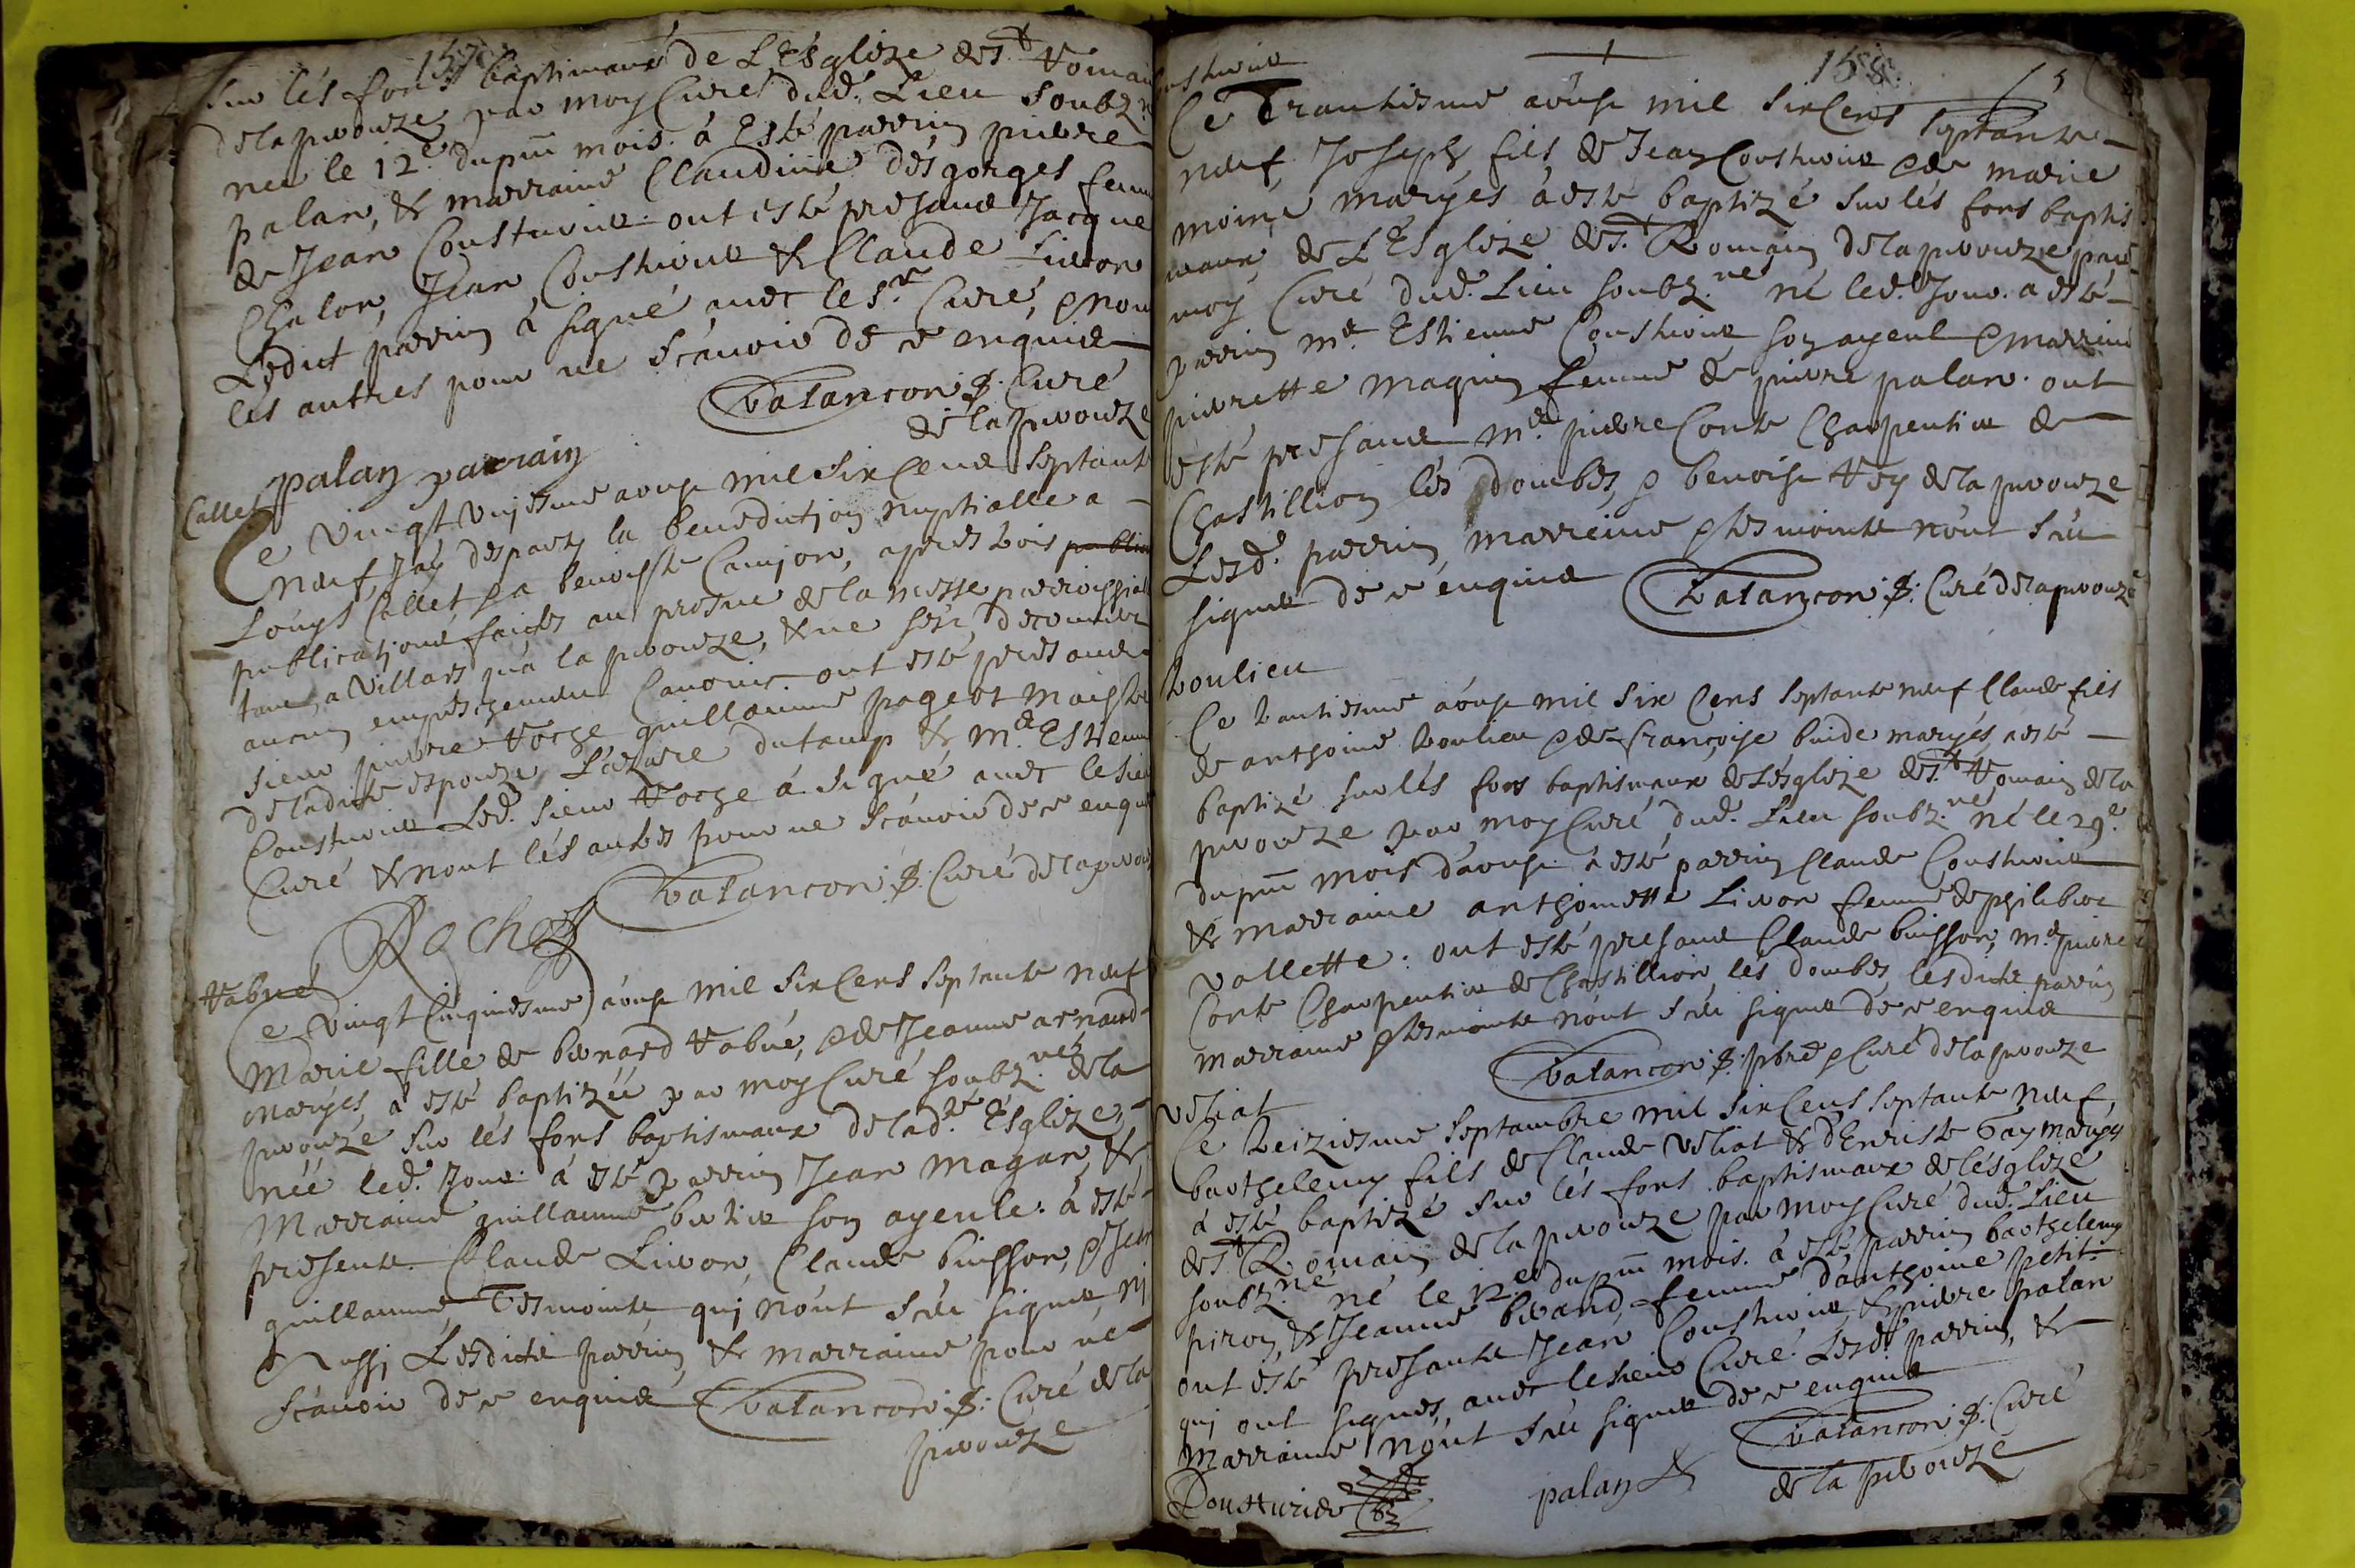 157
sur lés fons baptimaux de L'Esglize de St Romain
delaperouze par moy Curé dud. Lieu soubz.né
née le 12e dupnt mois. à Esté parrin pierre
palan, & marraine Claudine désgorges femme
de Jean Cousturier ont esté presans Jacque
Chalon, Jean Cousturier & Claude Livron
Ledict parrin à signé avec le sr Curé, & non
lés autres pour ne scavoir de ce enquis
Valancon Curé
de laperouze
palan parrain
Callet
Ce vingt unjesme aoust mil six Cens septante
neuf, j'ay desparty la benediction nuptialle a
Louys Callet & a benoiste Camjon, apres trois
publications faictes au prosne de la messe parroissiale
tant a Villars qu'a la perouze, & ne sest decouvert
aucun empeschement Canonic. ont esté presans
sieur pierre Roche guillaume pageot Maistre
deladicte espouze, Lazare dutamp & me Estienne
Cousturier Led. sieur Roche á signé avec lesieur
Curé & nont lés autres pour ne scavoir de ce enquis
Valancon Curé de laperouze
Roche
Rabué
Ce vingt Cinquiesme aoust mil six Cens septante neuf
Marie fille de benard Rabué, & de Jeanne arnaud
maryés, a esté baptizée par moy Curé soubz.né de la
perouze sur lés fons baptismaux delad.te Esglize,
née led. Jour. à esté parrin Jean magan, &
Marraine guillaumé son ayeule. à esté
presente Claude Livron, Claude buisson, & Jean
guillaume, Tesmointz qui nont sceu signer, ny
Aussy Lesdictz parrin & marraine pour ne
scavoir de ce enquis Valancon Curé de la
perouze
158
Cousturier
Ce Trantiesme aoust mil six Cens septante
neuf Joseph fils de Jean Cousturier & de marie
moine maryés à esté baptizé sur lés fons baptis
maux de L'Esglize de St. Romain delaperouze par
moy Curé dud. Lieu soubz.né né led. Jour. a esté
parrin me Estienne Cousturier son ayeul & marrine
pierrette maquin femme de pierre palan. ont
esté presans me pierre Conte Charpentier de
Chastillion lés doubes, & benoist Rey de la perouze
Lesd. parrin, marreine & tesmointz nont sceu
signer de ce enquis Valancon Curé delaperouze
boulieu
Ce trantiesme aoust mil six Cens septante neuf Claude fils
de anthoine boulieu & de françoise buide maryés, a esté
baptizé sur lés fons baptismaux de Lésglize de St Romain de la
perouze par moy Curé dud. Lieu soubz.né né le 29e.
dupnt mois d'aoust à esté parrin Claude Cousturier
& marraine anthoinette Livron femme de philibert
vallette. ont esté presans Claude buisson, me pierre
Conte Charpentier de Chastillion lés doubes, lesdictz parrin
Marraine & tesmointz nont sceu signer de ce enquis
Valancon pbre & Curé de laperouze
veliat
Ce treiziesme septambre mil six Cens septante neuf
barthelemy fils de Claude veliat & d'Enriste Gay maryés
á esté baptizé sur lés fons baptismaux de lésglize
de St Romain de la perouze par moy Curé dud. Lieu
soubz.né né le 12e dupnt mois. á esté parrin barthelemy
piron, & Jeanne berand, femme danthoine petit
ont ésté presantz Jean Cousturier, & pierre palan
qui ont signés avec lesieur Curé. Lesd. parrin, &
Marraine n'ont sceu signer de ce enquis
Valancon Curé
de la perouze
palan
Cousturier